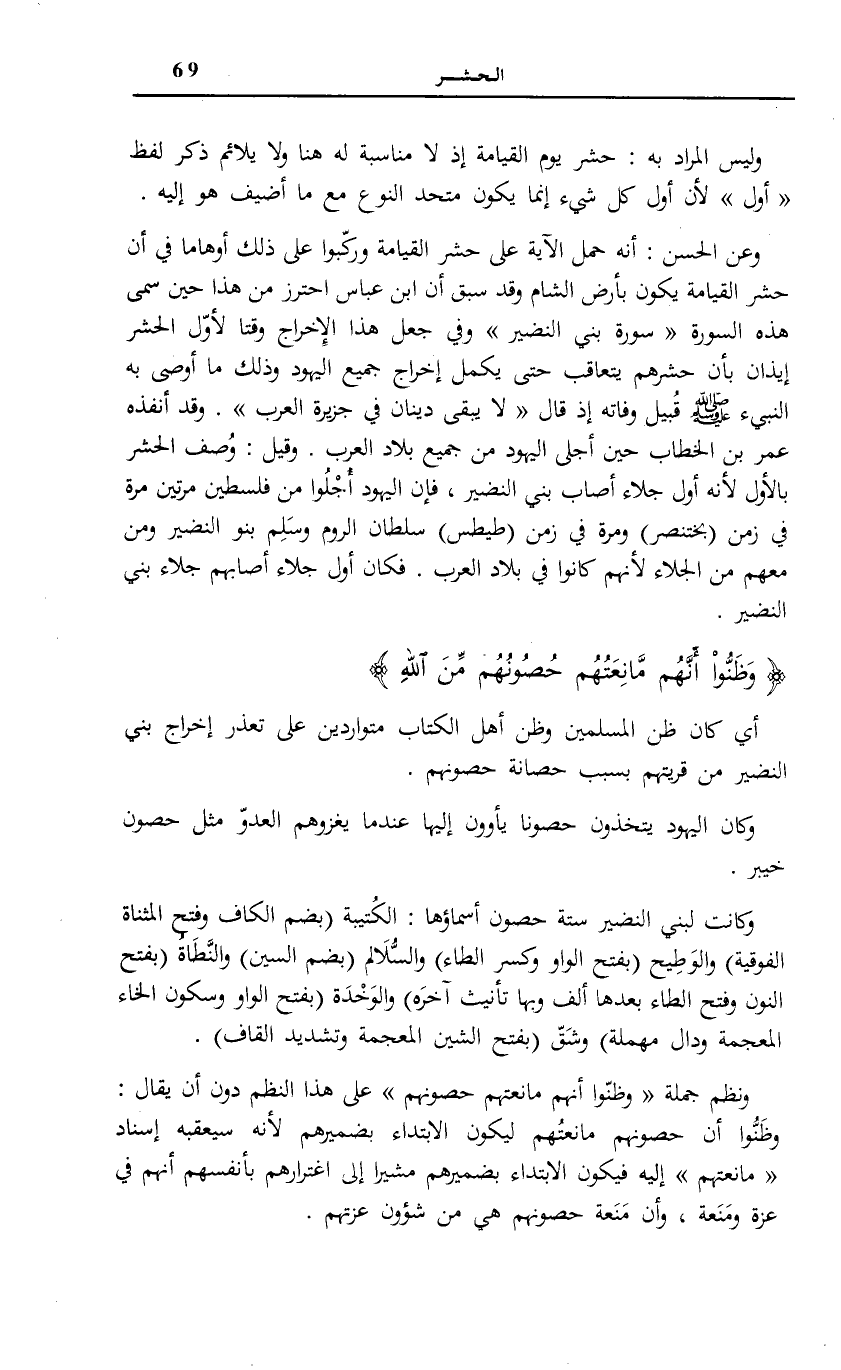 الـحـشـــر
69
وليس المراد به : حشر يوم القيامة إذ لا مناسبة له هنا ولا يلائم ذكر لفظ
« أول » لأن أول كل شيء إنما يكون متحد النوع مع ما أضيف هو إليه .
وعن الحسن : أنه حمل الآية على حشر القيامة وركّبوا على ذلك أوهاما في أن
حشر القيامة يكون بأرض الشام وقد سبق أن ابن عباس احترز من هذا حين سمى
هذه السورة « سورة بني النضير » وفي جعل هذا الإخراج وقتا لأوّل الحشر
إيذان بأن حشرهم يتعاقب حتى يكمل إخراج جميع اليهود وذلك ما أوصى به
النبيء ﷺ قُبيل وفاته إذ قال « لا يبقى دينان في جزيرة العرب » . وقد أنفذه
عمر بن الخطاب حين أجلى اليهود من جميع بلاد العرب . وقيل : وُصف الحشر
بالأول لأنه أول جلاء أصاب بني النضير ، فإن اليهود أُجْلُوا من فلسطين مرتين مرة
في زمن (بختنصر) ومرة في زمن (طيطس) سلطان الروم وسَلِم بنو النضير ومن
معهم من الجلاء لأنهم كانوا في بلاد العرب . فكان أول جلاء أصابهم جلاء بني
النضير .
﴿ وَظَنُّوا۟ أَنَّهُم مَّانِعَتُهُمْ حُصُونُهُم مِّنَ ٱللهِ ﴾
أي كان ظن المسلمين وظن أهل الكتاب متواردين على تعذر إخراج بني
النضير من قريتهم بسبب حصانة حصونهم .
وكان اليهود يتخذون حصونا يأوون إليها عندما يغزوهم العدوّ مثل حصون
خيبر .
وكانت لبني النضير ستة حصون أسماؤها : الكُتيبة (بضم الكاف وفتح المثناة
الفوقية) والوَطِيح (بفتح الواو وكسر الطاء) والسُّلَالم (بضم السين) والنَّطَاةُ (بفتح
النون وفتح الطاء بعدها ألف وبها تأنيث آخرَه) والوَخْدَة (بفتح الواو وسكون الخاء
المعجمة ودال مهملة) وشَقّ (بفتح الشين المعجمة وتشديد القاف) .
ونظم جملة « وظنّوا أنهم مانعتهم حصونهم » على هذا النظم دون أن يقال :
وظَنُّوا أن حصونهم مانعتُهم ليكون الابتداء بضميرهم لأنه سيعقبه إسناد
« مانعتهم » إليه فيكون الابتداء بضميرهم مشيرا إلى اغترارهم بأنفسهم أنهم في
عزة ومَنَعة ، وأن مَنَعة حصونهم هي من شؤون عزتهم .